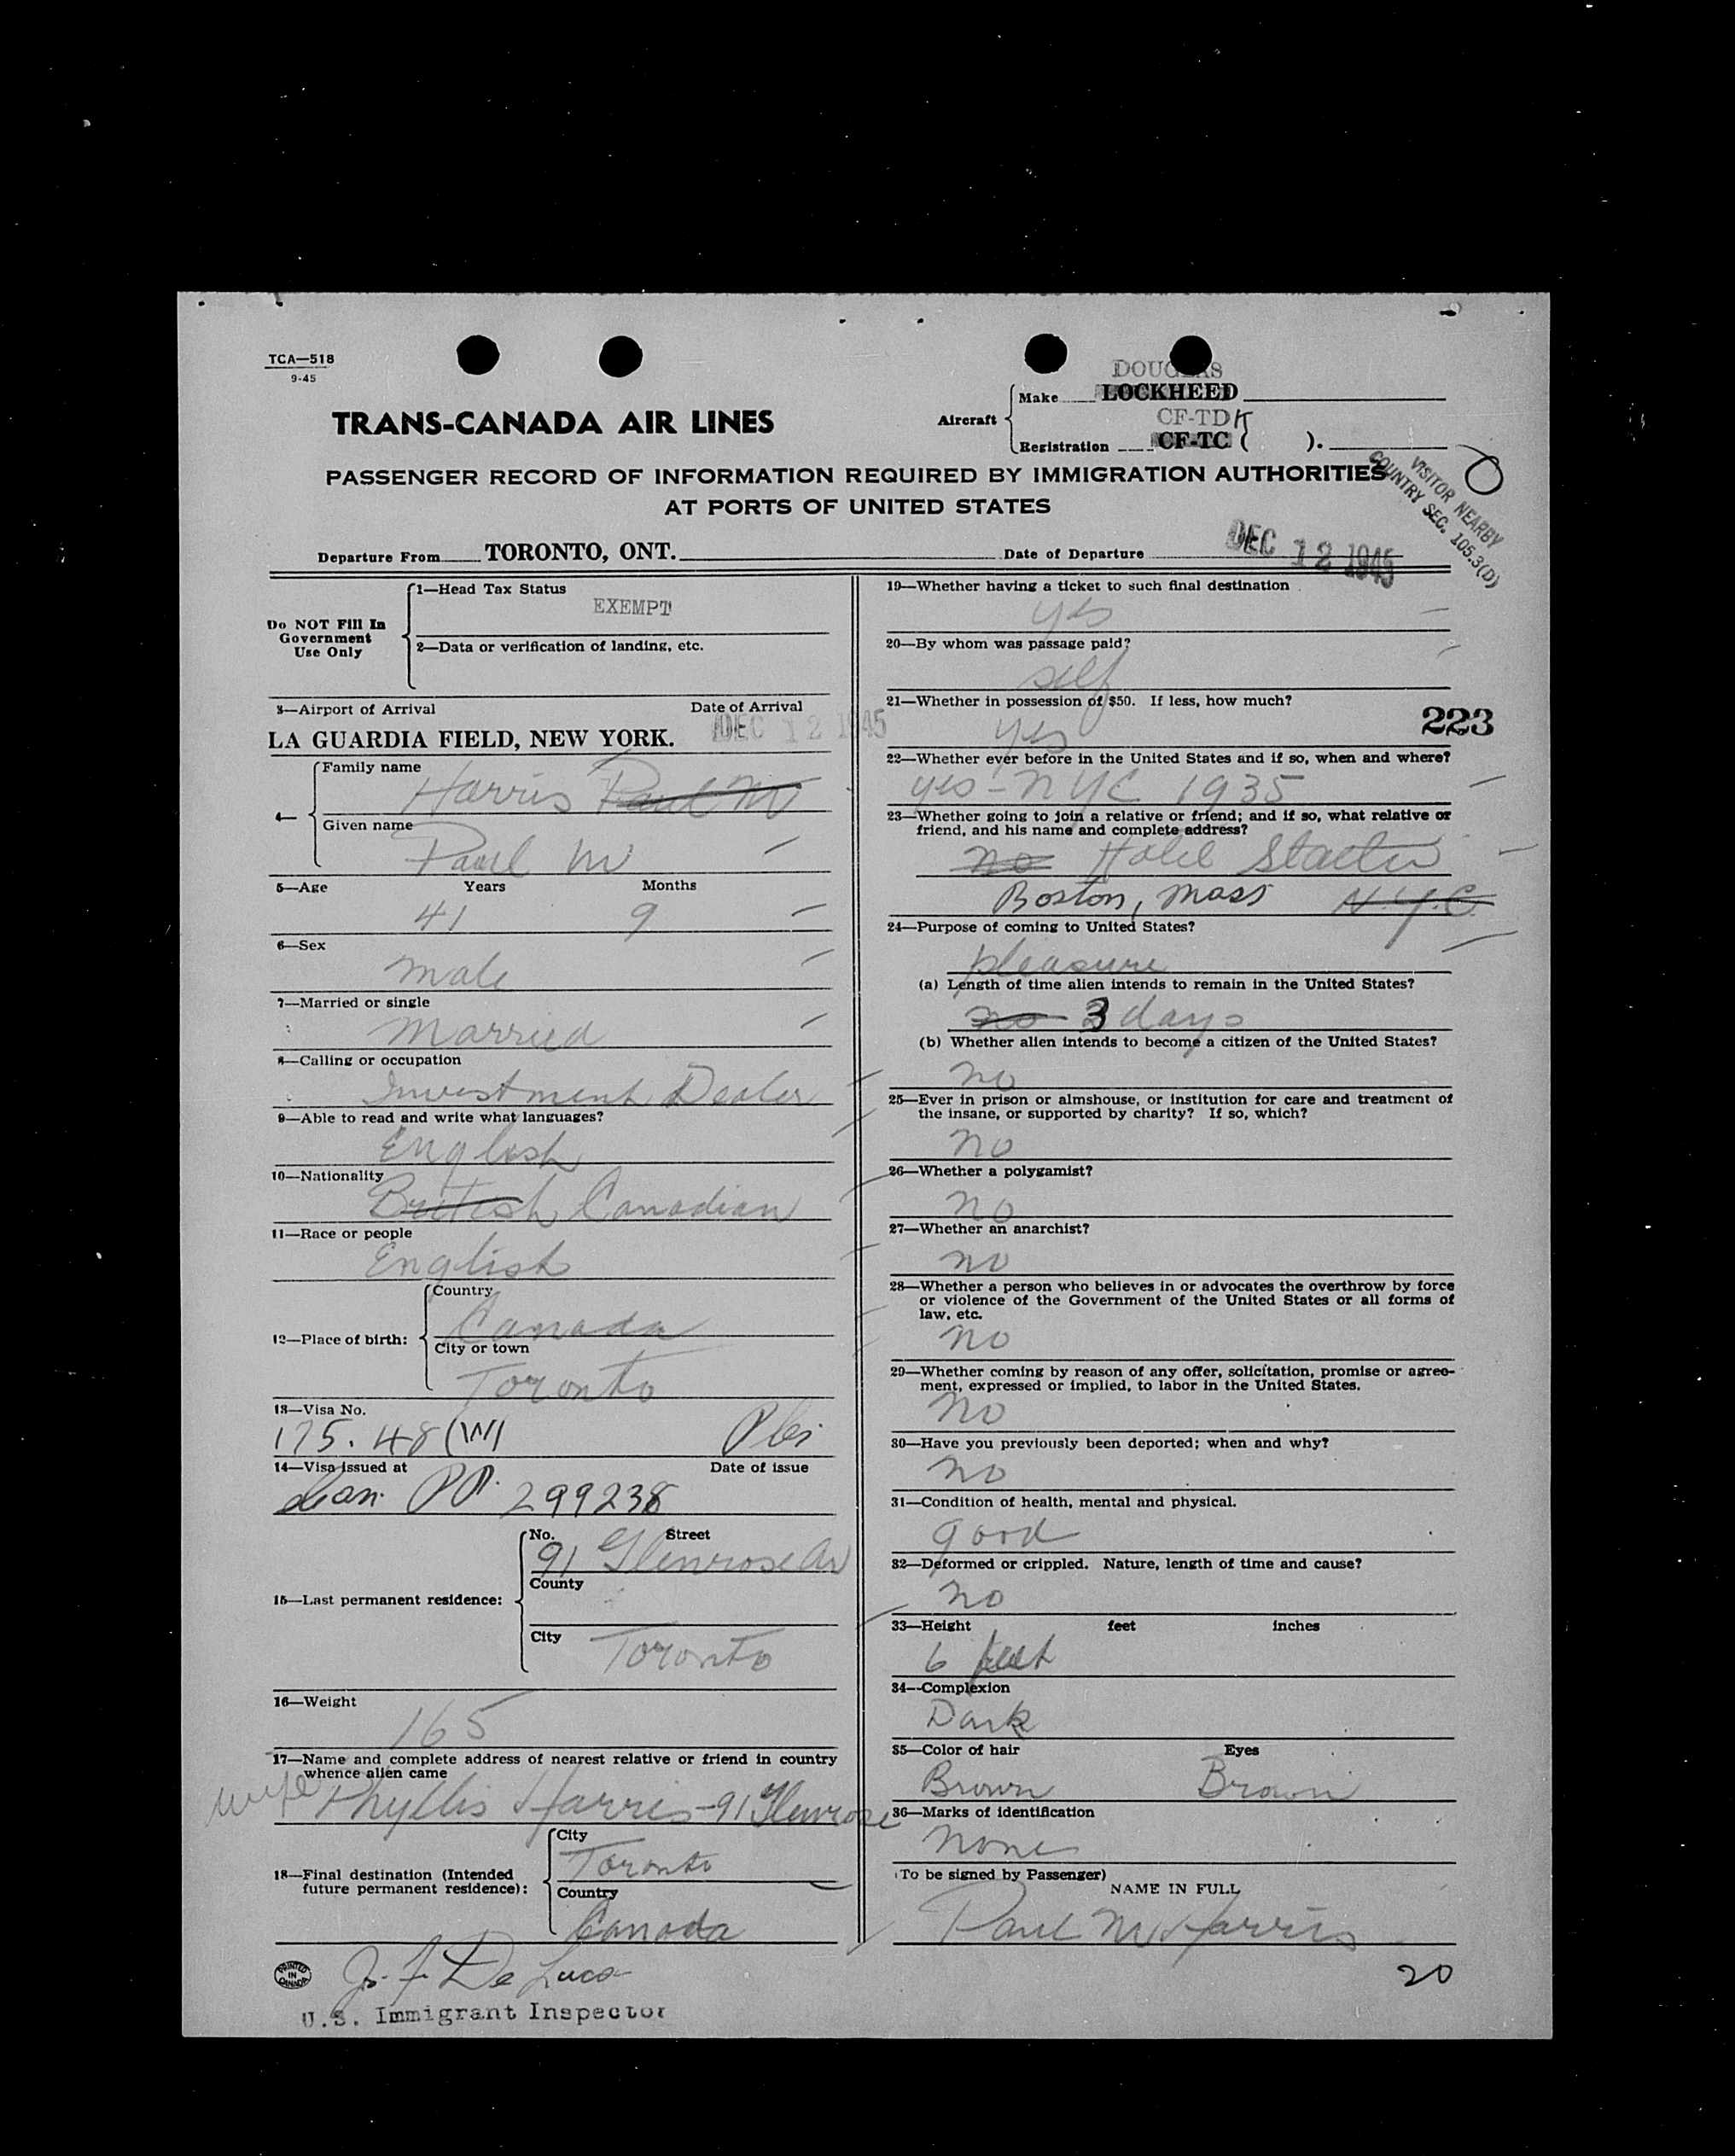 TCA—518
9-45
DOUGLAS
Make LOCKHEED
Aircraft
CF-TDK
Registration CF-TC ( ).
TRANS-CANADA AIR LINES
PASSENGER RECORD OF INFORMATION REQUIRED BY IMMIGRATION AUTHORITIES
AT PORTS OF UNITED STATES
VISITOR NEARBY
COUNTRY SEC. 105.3(D)
Departure From TORONTO, ONT. Date of Departure DEC 12 1945
Do NOT Fill In
Government
Use Only
1—Head Tax Status
EXEMPT
2—Data or verification of landing, etc.
3—Airport of Arrival Date of Arrival
LA GUARDIA FIELD, NEW YORK. DEC 12 1945
4—
Family name
Harris Paul M
Given name
Paul M
5—Age Years Months
41 9
6—Sex
Male
7—Married or single
Married
8—Calling or occupation
Investment Dealer
9—Able to read and write what languages?
English
10—Nationality
British Canadian
11—Race or people
English
12—Place of birth:
Country
Canada
City or town
Toronto
13—Visa No.
175.48(W)
14—Visa issued at Date of issue
Can. PP. 299238
15—Last permanent residence:
No. Street
91 Glenrose Av
County
City
Toronto
16—Weight
165
17—Name and complete address of nearest relative or friend in country
whence alien came
wife Phyllis Harris - 91 Glenrose
18—Final destination (Intended
future permanent residence):
City
Toronto
Country
Canada
J. F. De Luca
U.S. Immigrant Inspector
PRINTED
IN
CANADA
19—Whether having a ticket to such final destination
yes
20—By whom was passage paid?
self
21—Whether in possession of $50. If less, how much?
yes
223
22—Whether ever before in the United States and if so, when and where?
yes - NYC 1935
23—Whether going to join a relative or friend; and if so, what relative or
friend, and his name and complete address?
no Hotel Statler
Boston, Mass N.Y.C.
24—Purpose of coming to United States?
pleasure
(a) Length of time alien intends to remain in the United States?
no 3 days
(b) Whether alien intends to become a citizen of the United States?
no
25—Ever in prison or almshouse, or institution for care and treatment of
the insane, or supported by charity? If so, which?
no
26—Whether a polygamist?
no
27—Whether an anarchist?
no
28—Whether a person who believes in or advocates the overthrow by force
or violence of the Government of the United States or all forms of
law, etc.
no
29—Whether coming by reason of any offer, solicitation, promise or agree-
ment, expressed or implied, to labor in the United States.
no
30—Have you previously been deported; when and why?
no
31—Condition of health, mental and physical.
good
32—Deformed or crippled. Nature, length of time and cause?
no
33—Height feet inches
6 feet
34—Complexion
Dark
35—Color of hair Eyes
Brown Brown
36—Marks of identification
none
(To be signed by Passenger)
NAME IN FULL
Paul M Harris
20